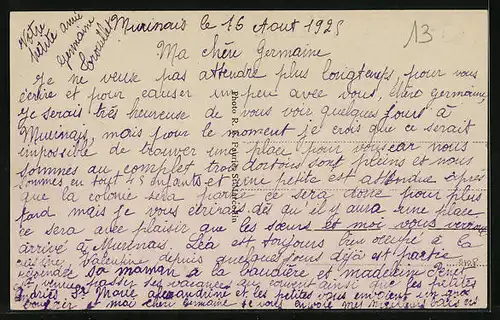 Votre petite amie
Germaine
Murinais le 16 Aout 1925
13
Ma chère Germaine
Je ne veuse pas attendre plus longtemps pour vous
écrire et pour causer un peu avec vous, chère germaine,
je serais très heureuse de vous voir quelques jours à
Murinais, mais pour le moment je crois que ce serait
impossible de trouver une place pour vous car nous
sommes au complet trois dortoirs sont pleins et nous
sommes en tout 45 enfants et une petite est attendue après
que la colonie sera partie ce sera donc pour plus
tard mais je vous écrirais dès qu'il y aura une place
ce sera avec plaisir que les sœurs et moi vous verrons
arrivé à Murinais. Léa est toujours bien occupé à la
Valentine depuis quelques jours déjà est partie
rejoindre sa maman à la baudière et madeleine
venue passer ses vacances au couvent ainsi que les petites
Marie alexandrine et les petites vous envoient un gros
bonjour et moi chère Germaine je vous envoie mes meilleurs
Photo R. m. Faurier St Marcellin